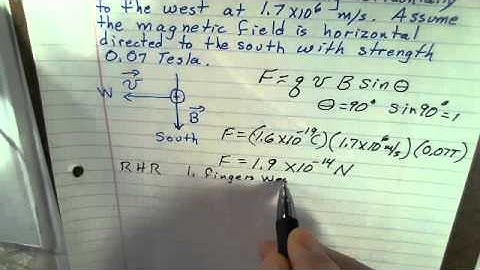 to the west at 1.7x10⁶ m/s. Assume
the magnetic field is horizontal
directed to the south with strength
0.07 Tesla.
v F = q v B sin θ
W + θ=90° sin90°=1
B
South F=(1.6x10⁻¹⁹C)(1.7x10⁶m/s)(0.07T)
F = 1.9 x10⁻¹⁴ N
RHR 1. fingers We